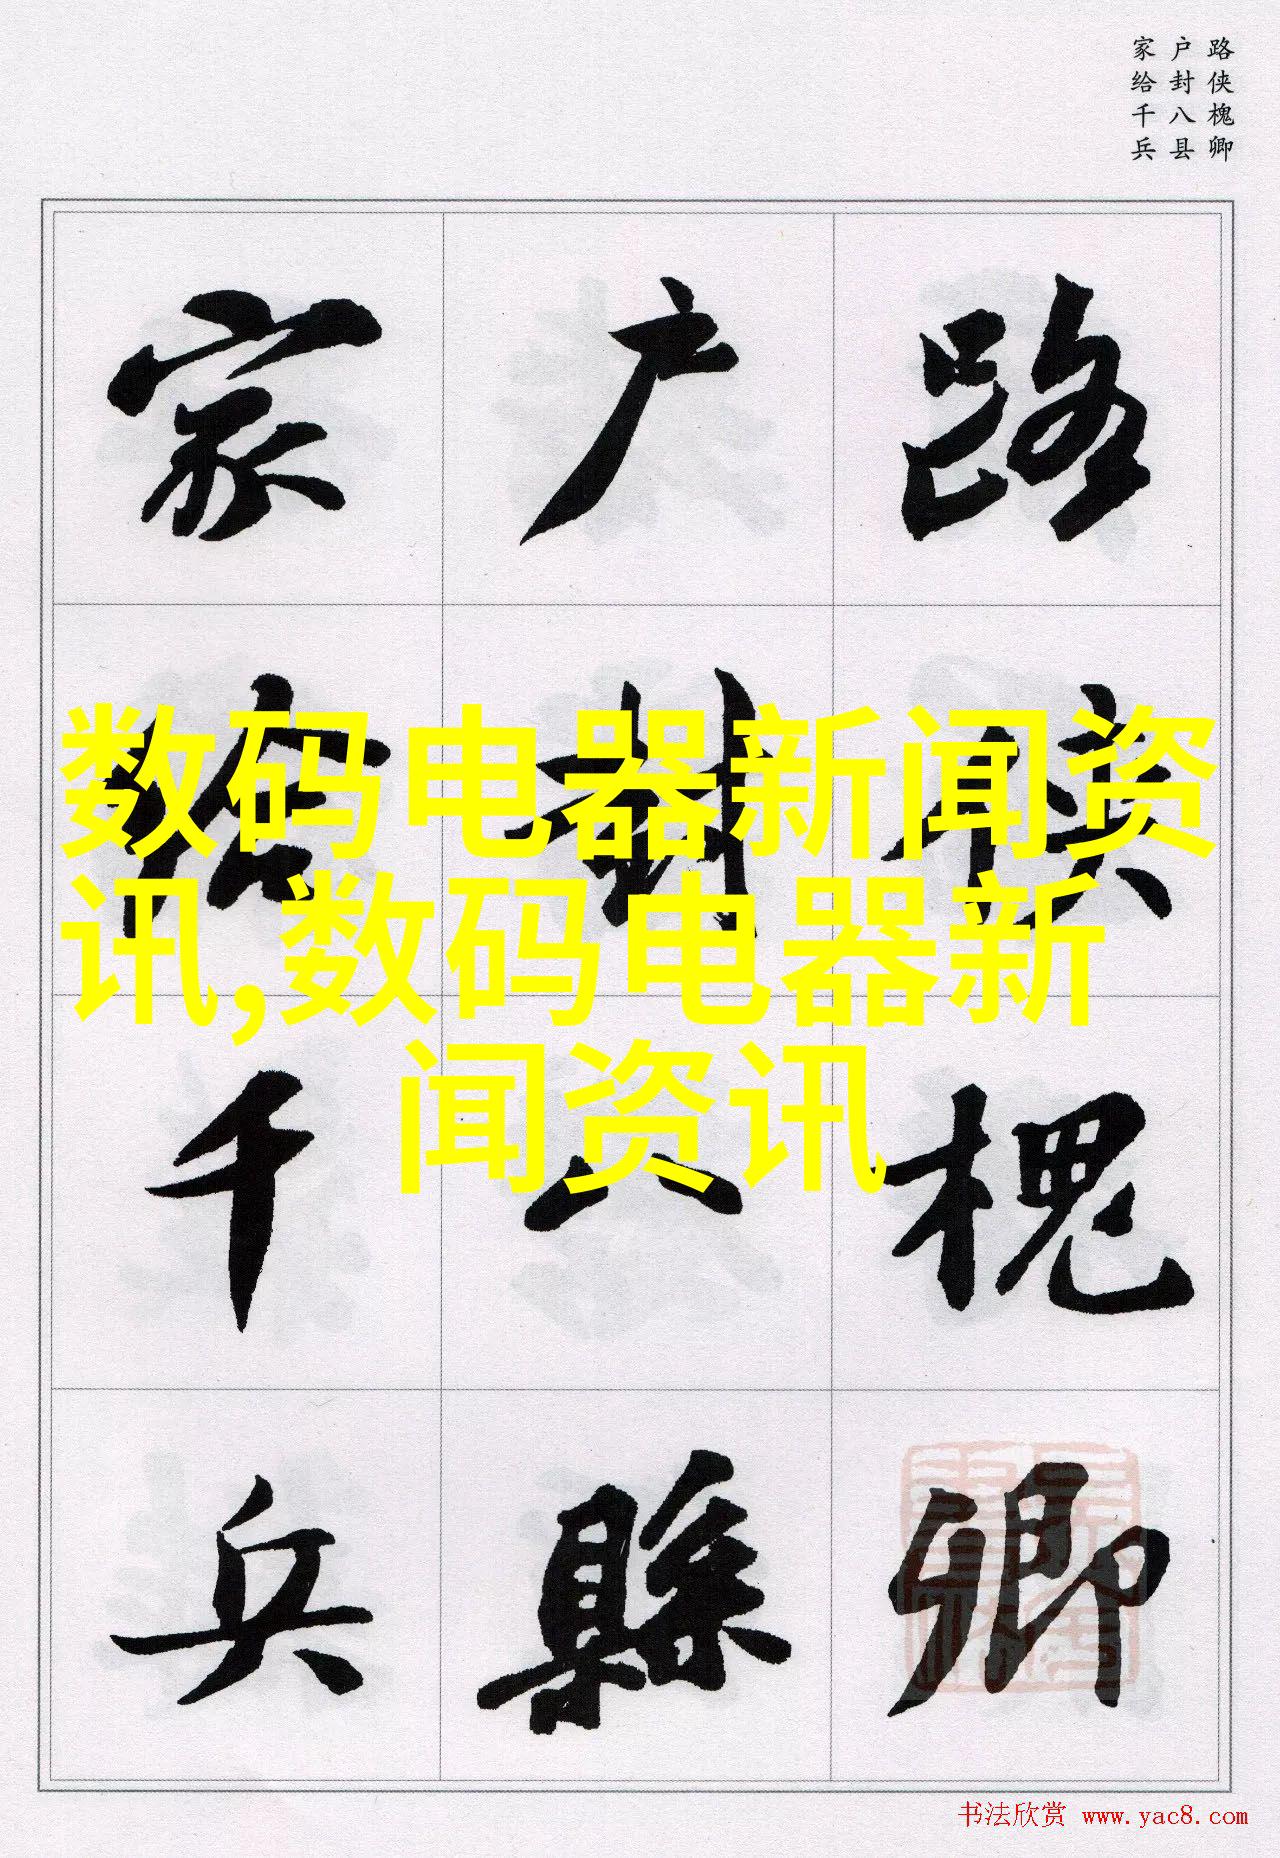 路侠槐卿
户封八县
家给千兵
路侠槐卿
户封八縣
家给千兵
数码电器新闻资
讯,数码电器新
闻资讯
书法欣赏 www.yac8.com